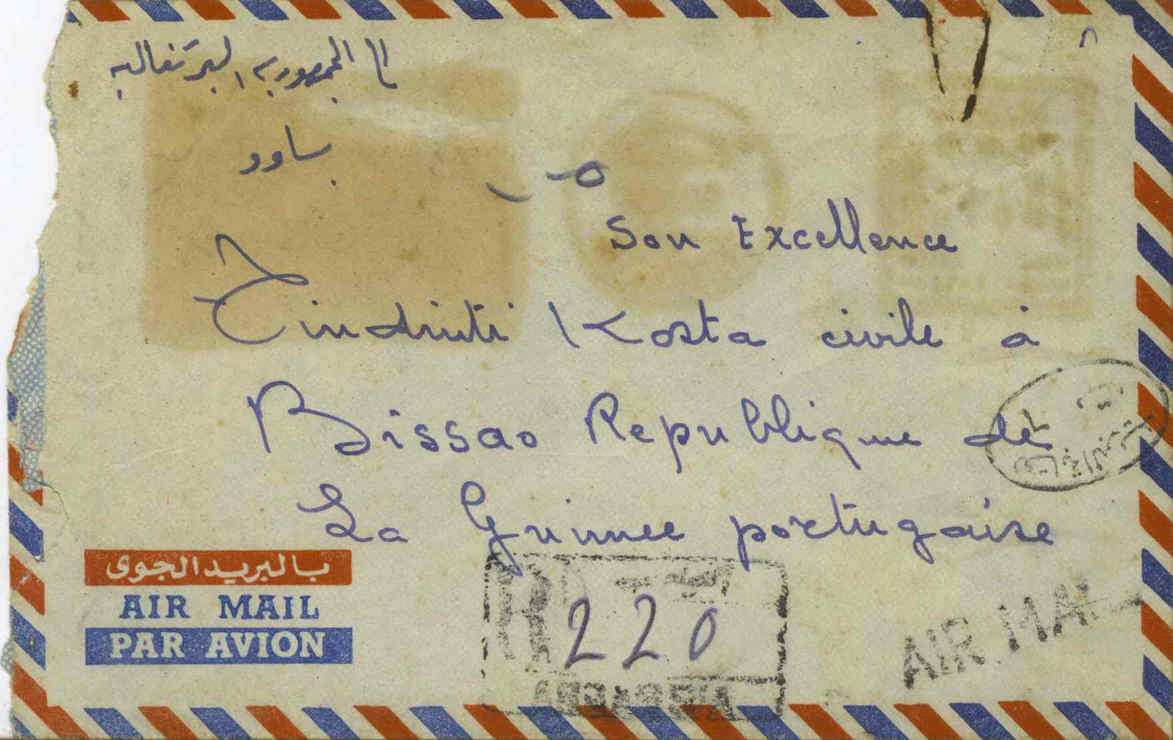 الى الجمهورية البرتغالية
بساوو
Son Excellence
Kosta civile à
Bissao Republique de
La Guinnee portugaise
بالبريد الجوى
AIR MAIL
PAR AVION
R
220
AIR MAI